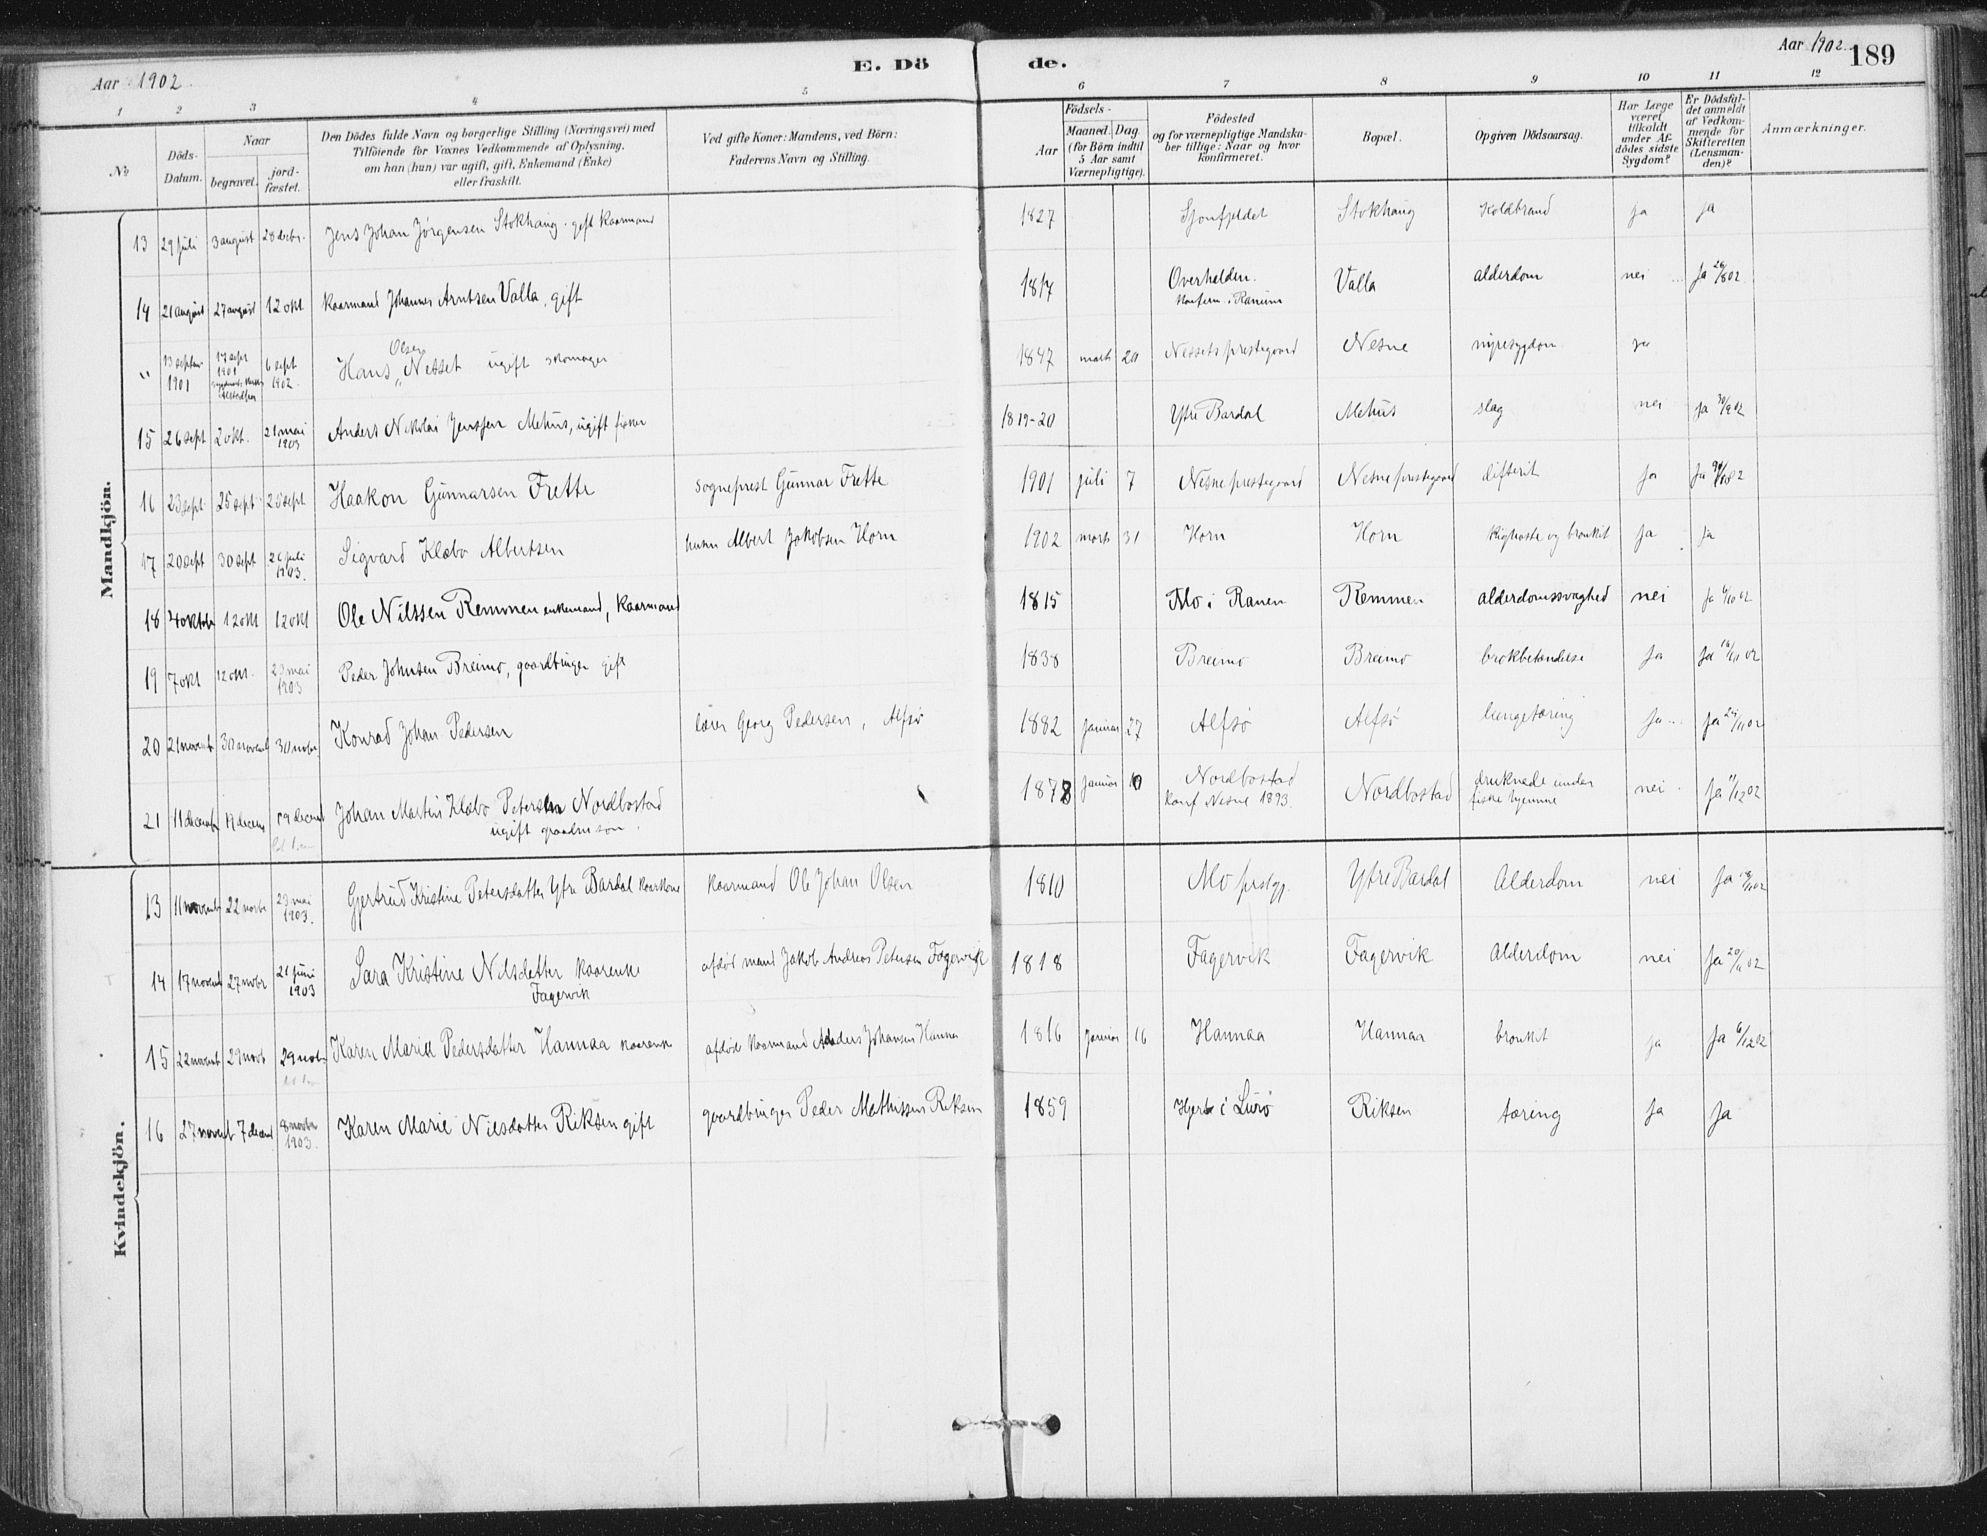 Aar 1902.
E. Dö
de.
Aar 1902.
189
1 2 3 4 5 6 7 8 9 10 11 12
№
Döds-Datum.
Naar
begravet.
jord-fæstet.
Den Dödes fulde Navn og borgerlige Stilling (Næringsvei) med
Tilföiende for Voxnes Vedkommende af Oplysning,
om han (hun) var ugift, gift, Enkemand (Enke)
eller fraskilt.
Ved gifte Koner: Mandens, ved Börn:
Faderens Navn og Stilling.
Födsels-
Aar
Maaned. Dag.
(for Börn indtil
5 Aar samt
Værnepligtige).
Födested
og for værnepligtige Mandska-
ber tillige: Naar og hvor
konfirmeret.
Bopæl.
Opgiven Dödsaarsag.
Har Læge
været
tilkaldt
under Af-
dödes sidste
Sygdom?
Er Dödsfal-
det anmeldt
af Vedkom-
mende for
Skifteretten
(Lensman-
den)?
Anmærkninger.
Mandkjön.
13 29 juli 3 august 28 decbr. Jens Johan Jörgensen Stokhaug. gift kaarmand 1827 Sjonfjeldet Stokhaug Koldbrand ja ja
14 21 august 27 august 12 okt kaarmand Johannes Arntsen Valla, gift 1817 Overhalden. Konferm. i Ranum Valla alderdom nei ja 26/8 02
" 13 septbr 1901 17 sept 1901 6 sept 1902. Hans Olsen Nesset ugift skomager 1847 marts 20 Nessets prestegaard Nesne nyresygdom ja
15 26 sept 2 okt. 21 mai 1903 Anders Nikolai Jenssen Mehus, ugift fisker 1819-20 Ytre Bardal Mehus slag nei ja 30/9 02
16 23 sept 25 sept 25 sept Haakon Gunnarsen Frette sogneprest Gunnar Frette 1901 juli 7 Nesne prestegaard Nesne prestegaard difterit ja ja
17 20 sept 30 sept 26 juli 1903. Sigvard Klæbo Albertsen husm Albert Jakobsen Horn 1902 marts 31 Horn Horn kighoste og bronkit ja ja
18 4 oktobr 12 okt 12 okt Ole Nilssen Remmen enkemand, kaarmand 1815 Mo i Ranen Remmen alderdomssvaghed nei ja 6/10 02
19 7 okt 12 okt. 23 mai 1903 Peder Johnsen Breimo, gaardbruger gift 1838 Breimo Breimo brokbetændelse ja ja
20 21 novemb 30 novemb 30 novbr. Konrad Johan Pedersen lærer Georg Pedersen, Alfsö 1882 januar 27 Alfsö Alfsö lungetæring ja ja 24/11 02
21 11 decembr 19 decemb 19 decemb Johan Martin Klæbo Petersen Nordbostad ugift graadmson. 1878 januar 10 Nordbostad konf Nesne 1893. Nordbostad druknede under fiske hjemme nei ja
Kvindekjön.
13 11 novembr 22 novbr 23 mai 1903. Gjertrud Kristine Petersdatter Ytre Bardal kaarkone kaarmand Ole Johan Olsen 1810 Mo prstgj. Ytre Bardal Alderdom nei ja
14 17 novemb 27 novbr 21 juni 1903 Sara Kristine Nilsdatter kaarenke Fagervik afdöd mand Jakob Andreas Petersen Fagervik 1818 Fagervik Fagervik Alderdom nei ja 20/11 02
15 22 novemb 29 novb 29 novbr Karen Marie Pedersdatter Hannaa kaarenke afdöde kaarmand Anders Johansen Hannaa 1816 januar 16 Hannaa Hannaa bronkit ja ja 6/12 02
16 27 novemb 7 decemb 8 novbr 1903. Karen Marie Nilsdatter Riksen gift gaardbruger Peder Mathissen Riksen 1859 i Lurö Riksen tæring ja ja